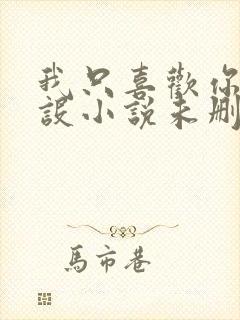 我只喜歡你
設小說未刪
馬市巷